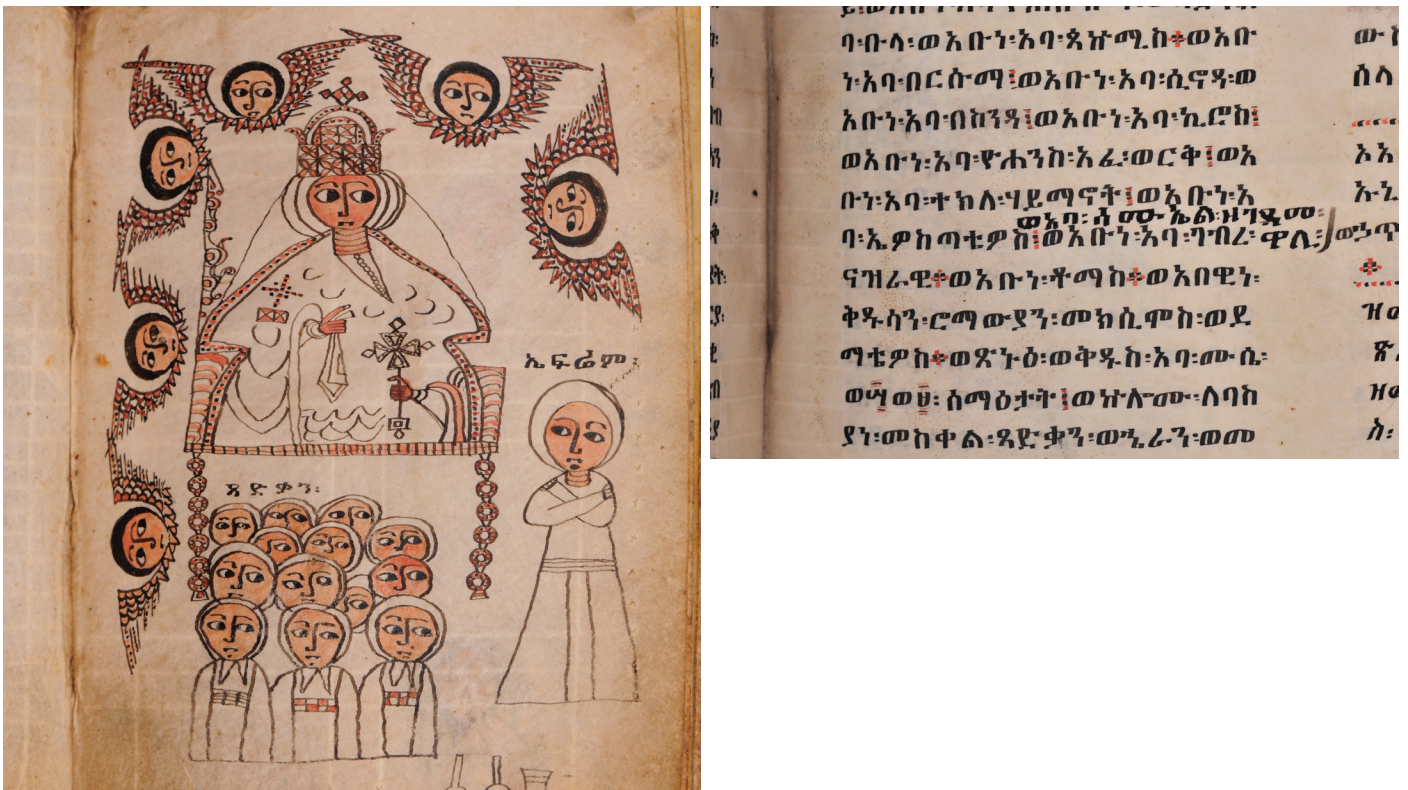 ኤፍሬም፡
ጻድቃን፡
ባ፡ቡላ፡ወአቡነ፡አባ፡ጳኵሚስ፨ወአቡ
ነ፡አባ፡በርሱማ፤ወአቡነ፡አባ፡ሲኖዳ፡ወ
አቡነ፡አባ፡በስንዳ፤ወአቡነ፡አባ፡ኪሮስ፤
ወአቡነ፡አባ፡ዮሐንስ፡አፈ፡ወርቅ፤ወአ
ቡነ፡አባ፡ተክለ፡ሃይማኖት፤ወአቡነ፡አ
ወአባ፡ሳሙኤል፡ዘገዳመ፡
ባ፡ኤዎስጣቴዎስ፤ወአቡነ፡አባ፡ገብረ፡ዋሊ፡
ናዝራዊ፨ወአቡነ፡ቶማስ፨ወአበዊነ፡
ቅዱሳን፡ሮማውያን፡መክሲሞስ፡ወደ
ማቴዎስ፨ወጽኑዕ፡ወቅዱስ፡አባ፡ሙሴ፡
ሰማዕታት፤ወኵሎሙ፡ለባስ
ያነ፡መስቀል፡ጻድቃን፡ወኄራን፡ወመ